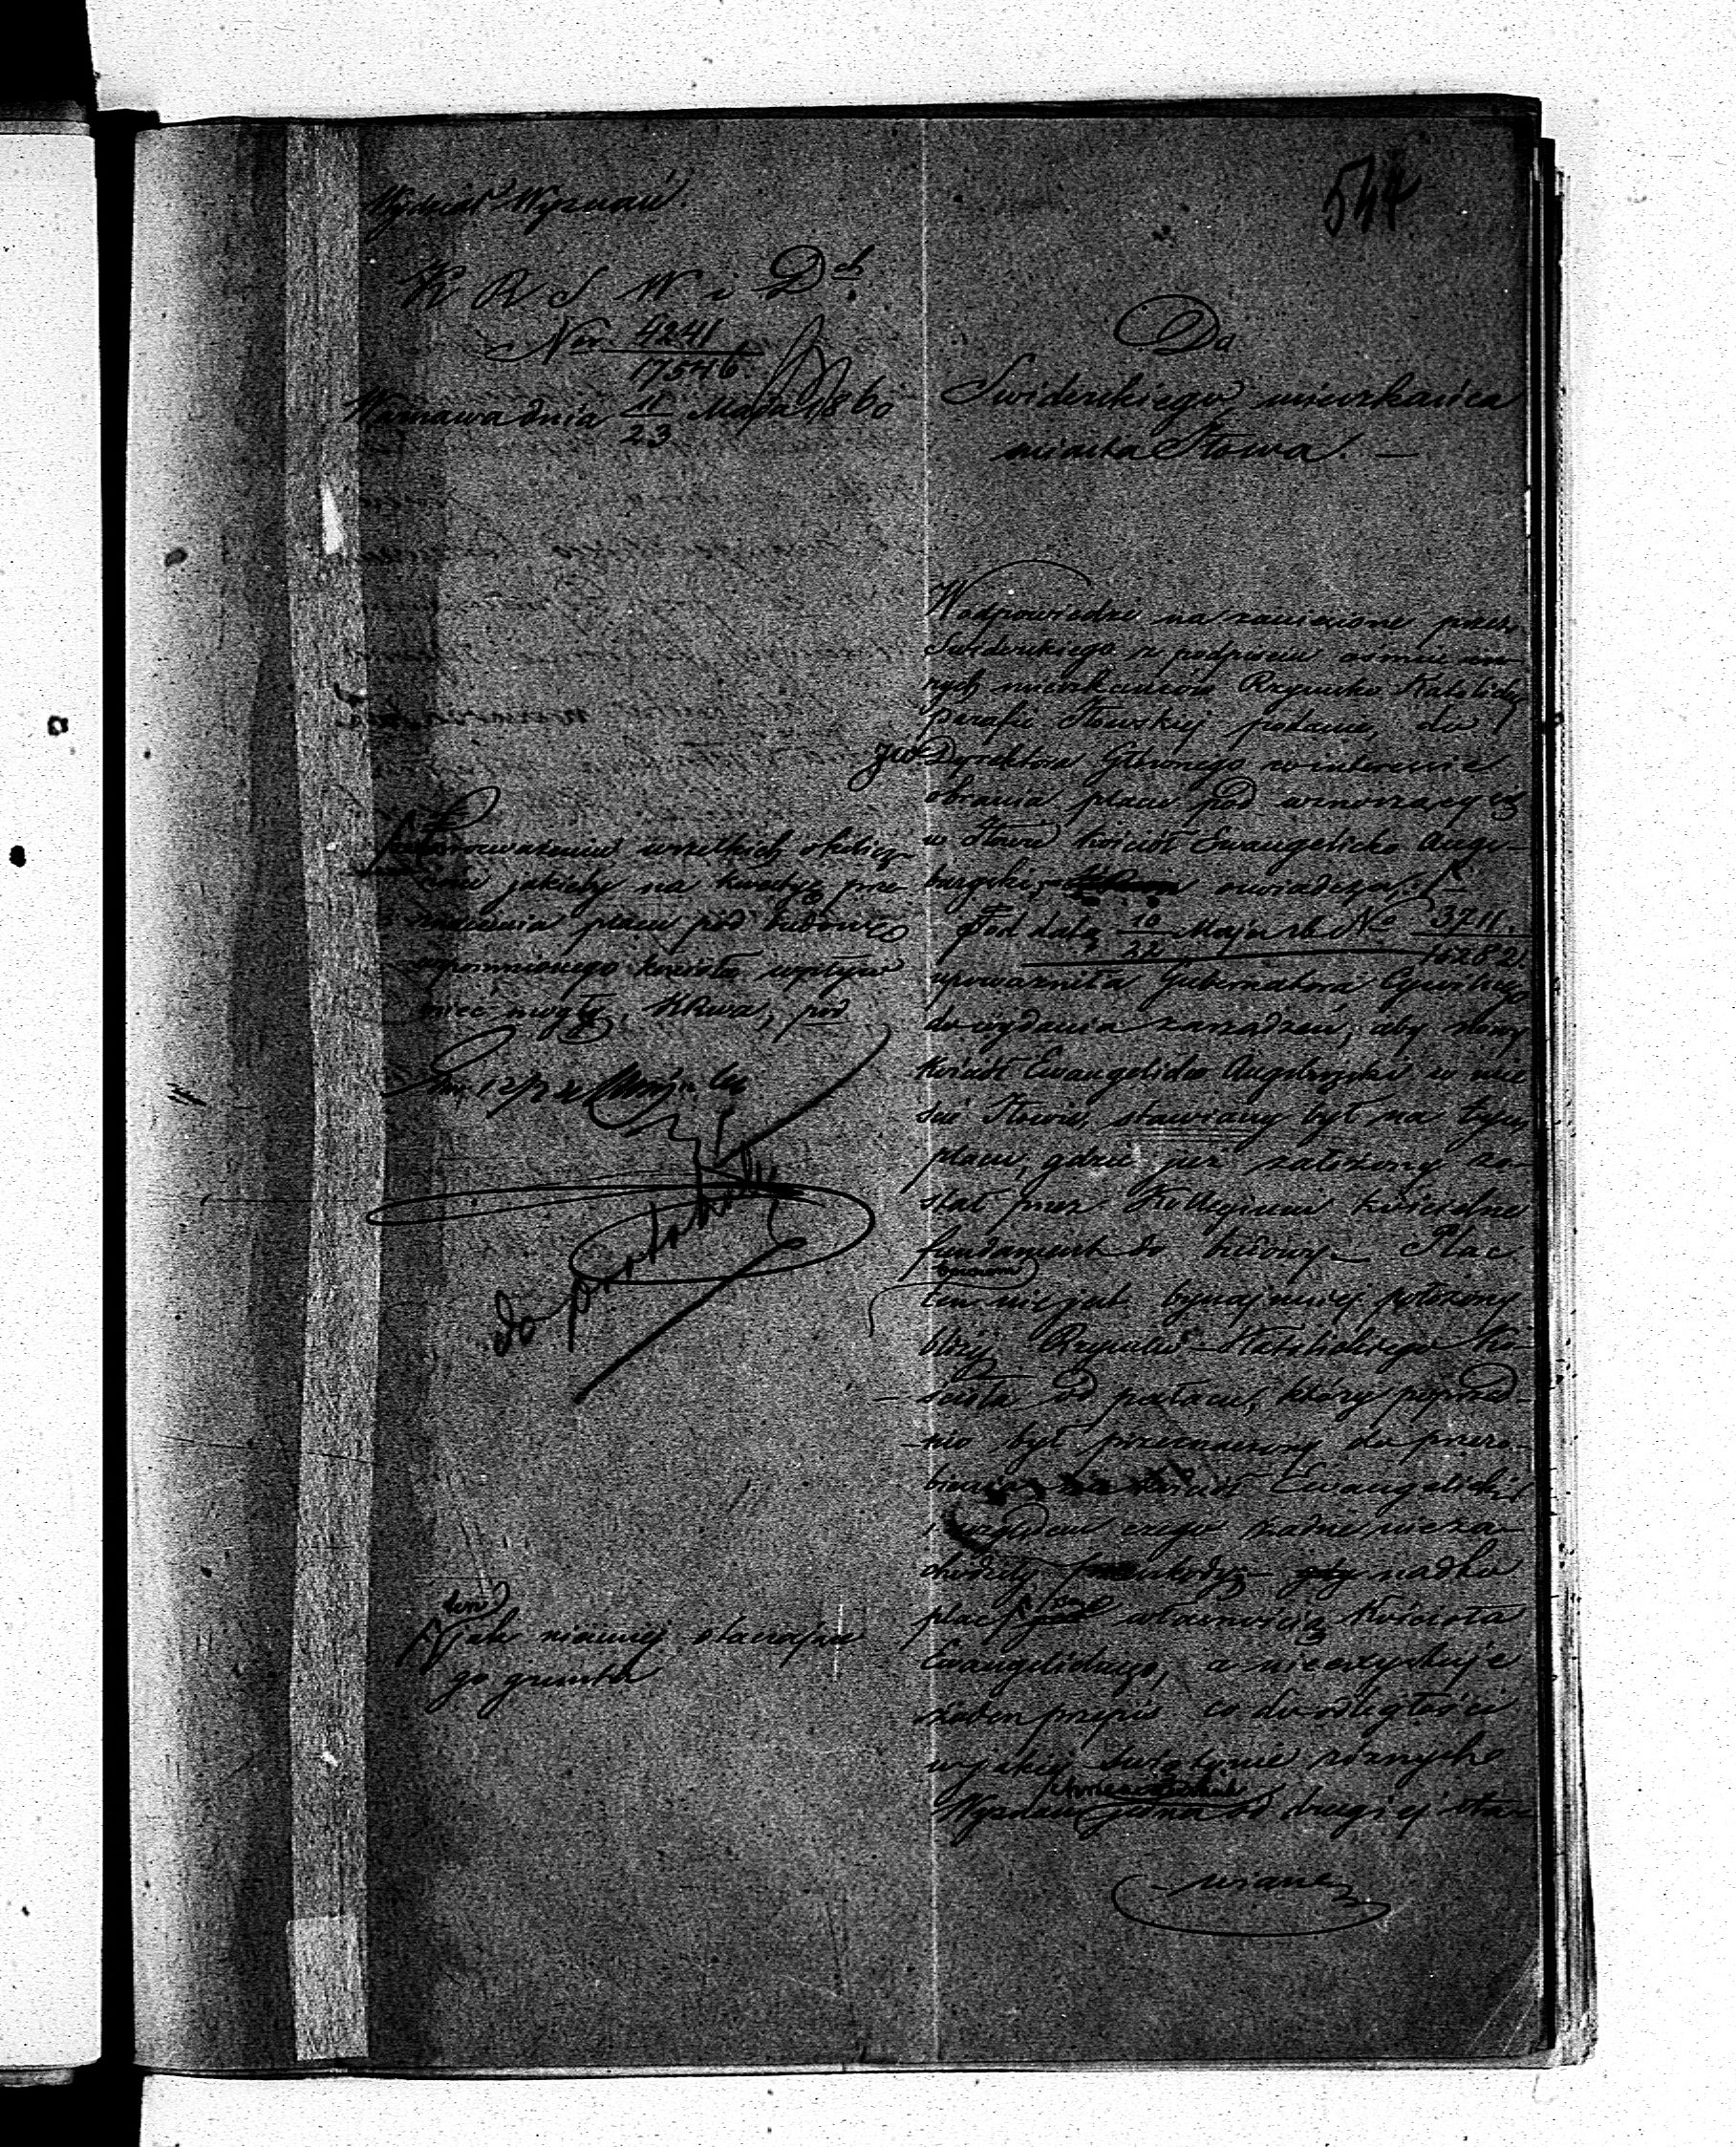 544
Wydział Wyznań.
K R S W i D ch
Nr. 4241
17546.
Warszawa dnia 11/23 Maja 1860
Do
Swiderskiego, mieszkańca
miasta Iłowa. —
W odpowiedzi na zaniesione przez
Swiderskiego z podpisem
nych mieszkańców Rzymsko Katolickiej
Parafii Iłowskiej podanie, do
JW Dyrektora Głównego w interesie
obrania placu pod wznoszący się
w Iłowie kościół Ewangelicko Augs-
burgski, oświadcza,
Pod datą 10/22 Maja rb No 3711.
15282.
upoważniła Gubernatora Cywilnego
do wydania zarządzeń, aby nowy
Kościół Ewangelicko Augsburgski w mie
ście Iłowie, stawiany był na tym
placu, gdzie już założony zo-
stał przez Kollegium kościelne
fundament do budowy — Plac
ten nie jest bynajmniej położony
bliżej Rzymsko-Katolickiego Ko-
ścioła od pałacu, który poprzed-
nio był przeznaczony do przero-
bienia na kościół Ewangelicki
i względem czego żadne nieza-
chodziły przeszkody — nadto
plac są własnością Kościoła
Ewangelickiego, a nieexystuje
żaden przepis co do odległości
w jakiej świątynie różnych
Wyznań jedna od drugiej sta-
wiane
rozważeniu wszelkich okolicz-
ności jakieby na kwestyę prze
znaczenia placu pod budowę
wspomnionego kościoła wpływ
mieć mogły, KRwz, pod
do protokułu
ten
jak niemniej otaczające
go grunta